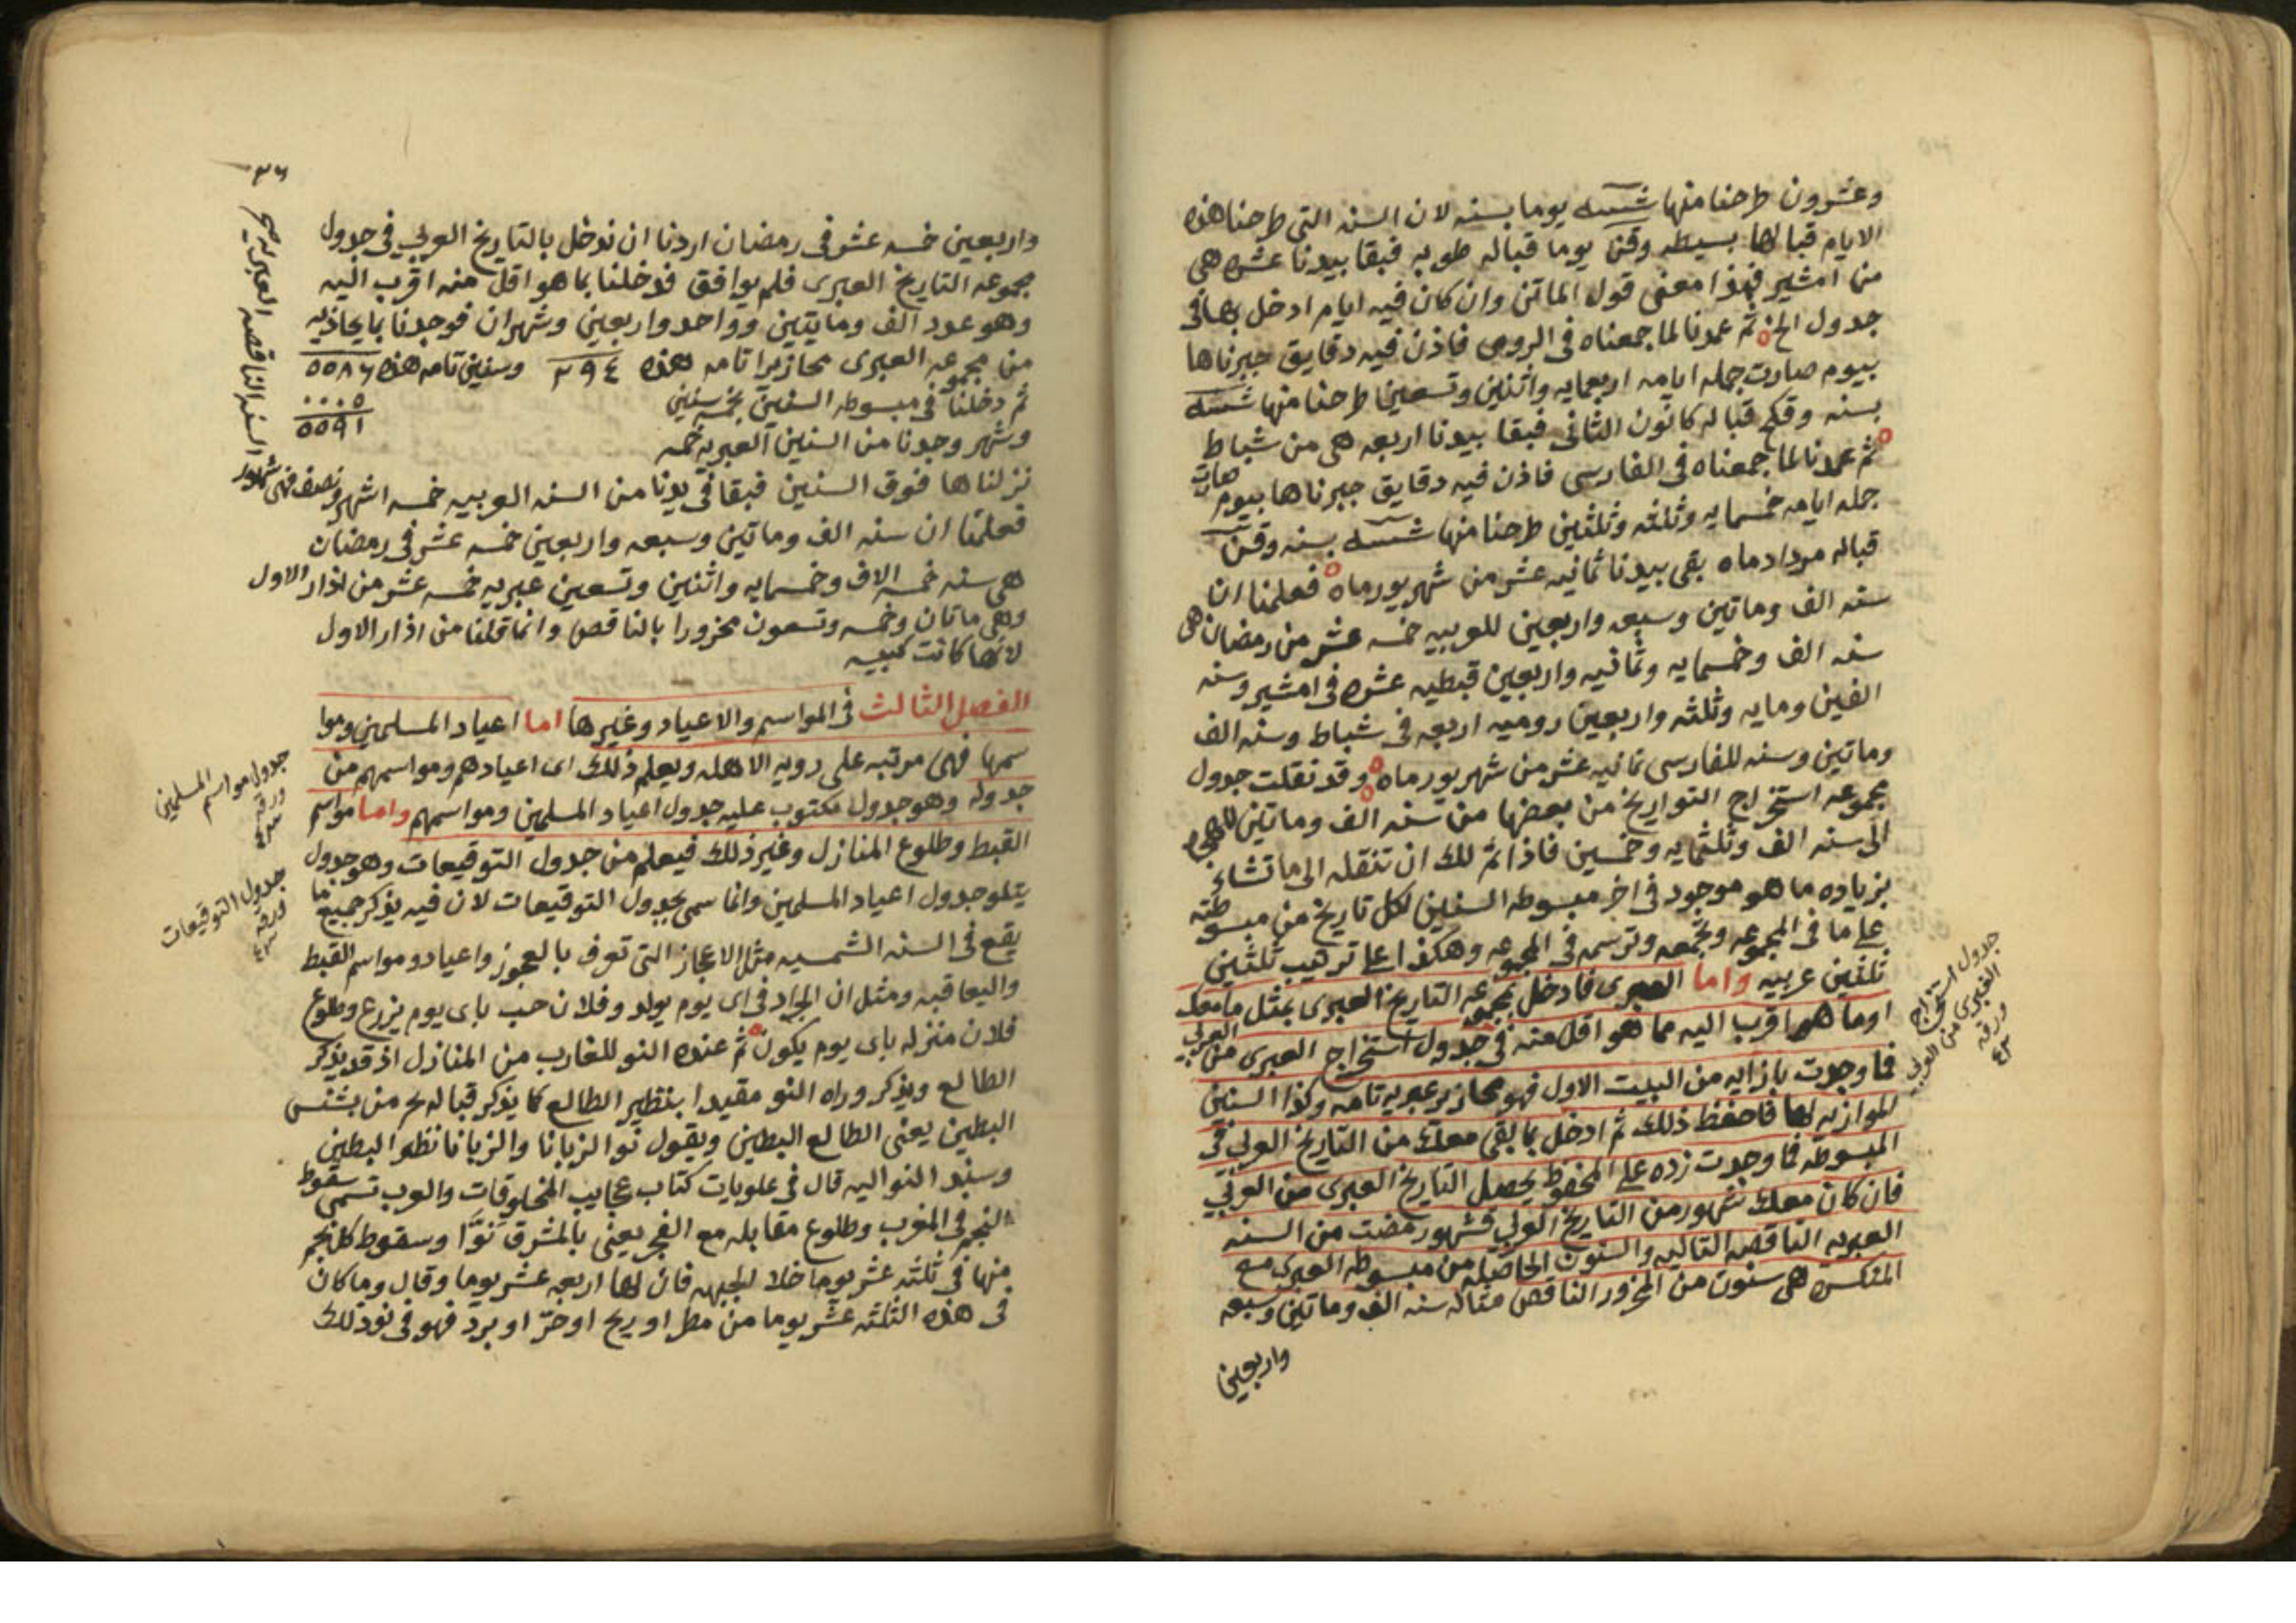 وعشرون طرحنا منها شسه يوما بسنه لان السنه التى طرحنا هذه
الايام قبالها بسيطه وقن يوما قباله طوبه فبقا بيدنا عشره هى
من امشير فهذا معنى قول الماتن وان كان فيه ايام ادخل بها فى
جدول الخ ثم عمدنا لما جمعناه فى الرومى فاذن فيه دقايق جبرناها
بيوم صارت جمله ايامه اربعمايه واثنين وتسعين طرحنا منها شسه
بسنه وقكج قباله كانون الثانى فبقا بيدنا اربعه هى من شباط
ثم عمدنا لما جمعناه فى الفارسى فاذن فيه دقايق جبرناها بيوم صارت
جمله ايامه خمسمايه وثلثه وثلثين طرحنا منها شسه بسنه وقن
قباله مردادماه بقى بيدنا ثمانيه عشر من شهريورماه فعلمنا ان
سنه الف وماتين وسبعه واربعين للعربيه خمسه عشر من رمضان هى
سنه الف وخمسمايه وثمانيه واربعين قبطيه عشره فى امشير وسنه
الفين ومايه وثلثه واربعين روميه اربعه فى شباط وسنه الف
وماتين وسنه للفارسى ثمانيه عشر من شهريورماه وقد نقلت جدول
مجموعه استخراج التواريخ من بعضها من سنه الف وماتين
الى سنه الف وثلثمايه وخمسين فاذا تم لك ان تنقله الى ما تشاء
بزياده ما هو موجود فى اخر مبسوطه السنين لكل تاريخ من مبسوطته
على ما فى المجموعه وتجمعه وترسمه فى المجموعه وهكذا على ترهيب ثلثين
ثلثين عربيه واما العبرى فادخل بمجموعه التاريخ العبرى بمثل ما معك
او ما هو اقرب اليه مما هو اقل منه فى جدول استخراج العبرى من العربى
فما وجدت بازايه من البيت الاول فهو محازير عبريه تامه وكذا السنين
الموازيه لها فاحفظ ذلك ثم ادخل بما بقى معك من التاريخ العربى فى
المبسوطه فما وجدت زده على المحفوظ يحصل التاريخ العبرى من العربى
فان كان معك شهور من التاريخ العربى فشهور مضت من السنه
العبريه الناقصه التاليه والسنون الحاصله من مبسوطه العبرى مع
المنكسره هى سنون من المحزور الناقص مثاله سنه الف وماتين وسبعه
واربعين
جدول استخراج
العبرى من العربى
ورقه
٤٣
٣٦
واربعين خمسه عشر فى رمضان اردنا ان ندخل بالتاريخ العربى فى جدول
مجموعه التاريخ العبرى فلم يوافق فدخلنا بما هو اقل منه اقرب اليه
وهو عدد الف ومايتين وواحد واربعين وشهران فوجدنا بما يحاذيه
من مجموعه العبرى محازيرا تامه هذه ٢٩٤ وسنين تامه هذه ٥٥٨٦
ثم دخلنا فى مبسوطه السنين بخمسه سنين ٠٠٠٥
وشهر وجدنا من السنين العبريه خمسه ٥٥٩١
نزلناها فوق السنين فبقا فى يدنا من السنه العربيه خمسه اشهر ونصف فهى شهور
السنه الناقصه العبرانيه
فعلمنا ان سنه الف وماتين وسبعه واربعين خمسه عشر فى رمضان
هى سنه خمسه الاف وخمسمايه واثنين وتسعين عبريه خمسه عشر من اذار الاول
وهى ماتان وخمسه وتسعون محزورا بالناقص وانما قلنا من اذار الاول
لانها كانت كبيسه
الفصل الثالث فى المواسم والاعياد وغيرها اما اعياد المسلمين وموا
سمها فهى مرتبه على رويه الاهله ويعلم ذلك اى اعيادهم ومواسمهم من
جدوله وهو جدول مكتوب عليه جدول اعياد المسلمين ومواسمهم واما مواسم
القبط وطلوع المنازل وغير ذلك فيعلم من جدول التوقيعات وهو جدول
يتلو جدول اعياد المسلمين وانما سمى بجدول التوقيعات لان فيه يذكر جميع ما
يقع فى السنه الشمسيه مثل الاعجاز التى تعرف بالعجوز واعياد ومواسم القبط
واليعاقبه ومثل ان الجراد فى اى يوم يولد وفلان حب باى يوم يزرع وطلوع
فلان منزله باى يوم يكون ثم عنده النو للغارب من المنازل اذ قد يذكر
الطالع ويذكر وراه النو مقيدا بنظير الطالع كما يذكر قباله يح من بشنس
البطين يعنى الطالع البطين ويقول نوا الزبانا والزبانا نظير البطين
وسبند النو اليه قال فى علويات كتاب عجايب المخلوقات والعرب تسمى سقوط
النجم فى المغرب وطلوع مقابله مع الفجر يعنى بالمشرق نوّا وسقوط كل نجم
منها فى ثلثه عشر يوما خلا الجبهه فان لها اربعه عشر يوما وقال وما كان
فى هذه الثلثه عشر يوما من مطر او ريح او حرّ او برد فهو فى نو ذلك
جدول مواسم المسلمين
ورقه
٤٣
جدول التوقيعات
ورقه
٤٣